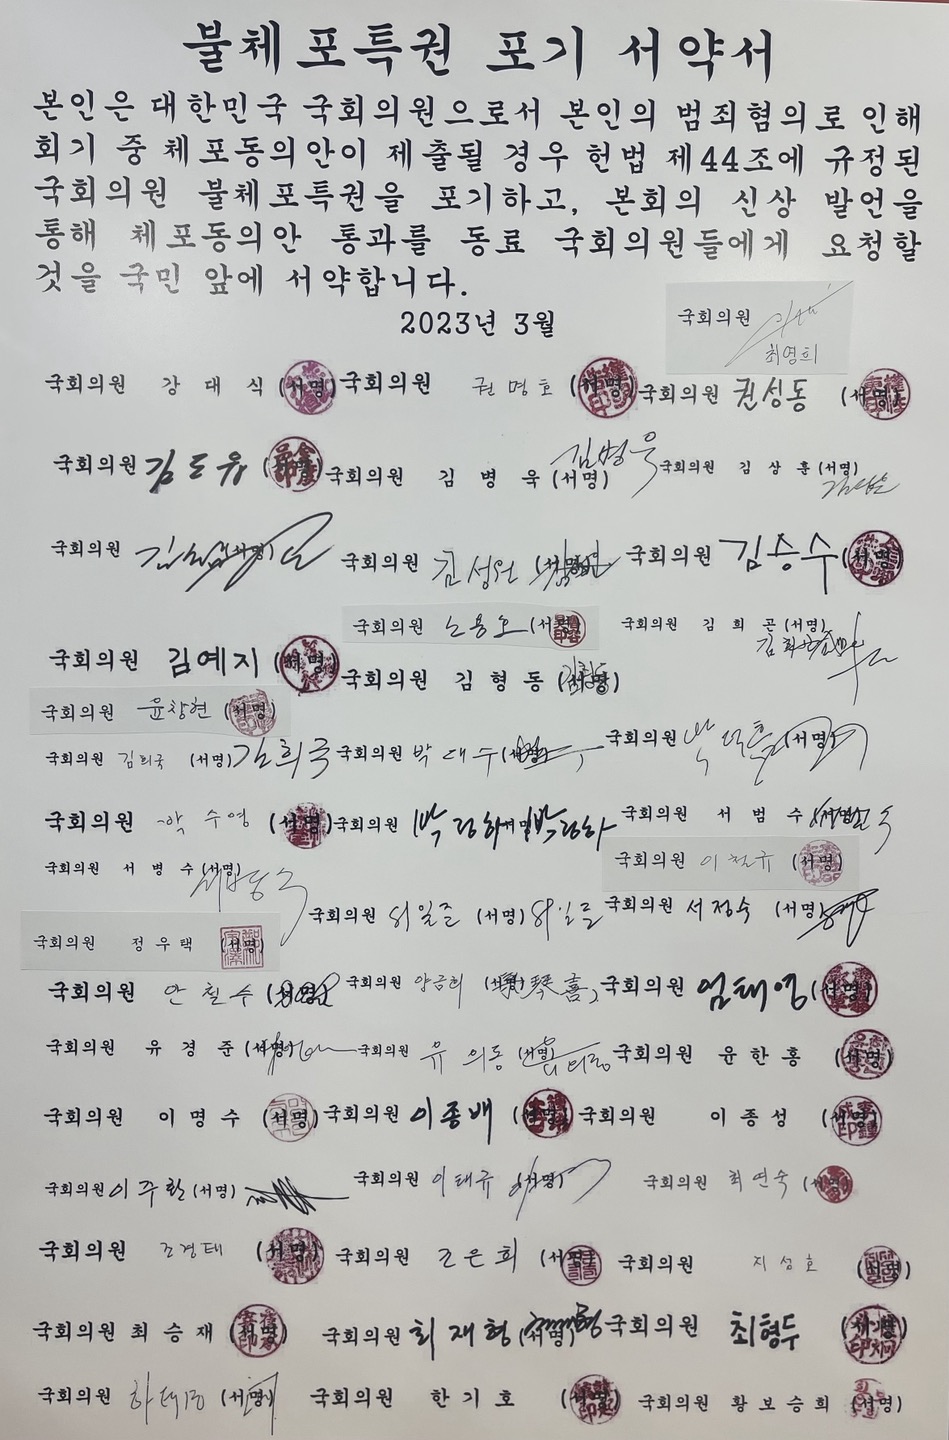 불체포특권 포기 서약서
본인은 대한민국 국회의원으로서 본인의 범죄혐의로 인해
회기 중 체포동의안이 제출될 경우 헌법 제44조에 규정된
국회의원 불체포특권을 포기하고, 본회의 신상 발언을
통해 체포동의안 통과를 동료 국회의원들에게 요청할
것을 국민 앞에 서약합니다.
2023년 3월
국회의원 최영희
국회의원 강대식 (서명) 국회의원 권명호 (서명) 국회의원 권성동 (서명)
국회의원 김도읍 (서명) 국회의원 김병욱 (서명) 김병욱 국회의원 김상훈 (서명)
국회의원 (서명) 국회의원 김성원 (서명) 국회의원 김승수 (서명)
국회의원 노용호 (서명) 국회의원 김희곤 (서명)
국회의원 김예지 (서명) 국회의원 김형동 (서명)
국회의원 윤창현 (서명)
국회의원 김희국 (서명) 김희국 국회의원 박대수 (서명) 국회의원 박덕흠 (서명)
국회의원 박수영 (서명) 국회의원 박정하 (서명) 박정하 국회의원 서범수 (서명)
국회의원 서병수 (서명) 서병수 국회의원 이철규 (서명)
국회의원 서일준 (서명) 서일준 국회의원 서정숙 (서명)
국회의원 정우택 (서명)
국회의원 안철수 (서명) 국회의원 양금희 (서명) 국회의원 엄태영 (서명)
국회의원 유경준 (서명) 국회의원 유의동 (서명) 국회의원 윤한홍 (서명)
국회의원 이명수 (서명) 국회의원 이종배 (서명) 국회의원 이종성 (서명)
국회의원 이주환 (서명) 국회의원 이태규 (서명) 국회의원 최연숙 (서명)
국회의원 조경태 (서명) 국회의원 조은희 (서명) 국회의원 지성호 (서명)
국회의원 최승재 (서명) 국회의원 최재형 (서명) 국회의원 최형두 (서명)
국회의원 하태경 (서명) 국회의원 한기호 (서명) 국회의원 황보승희 (서명)